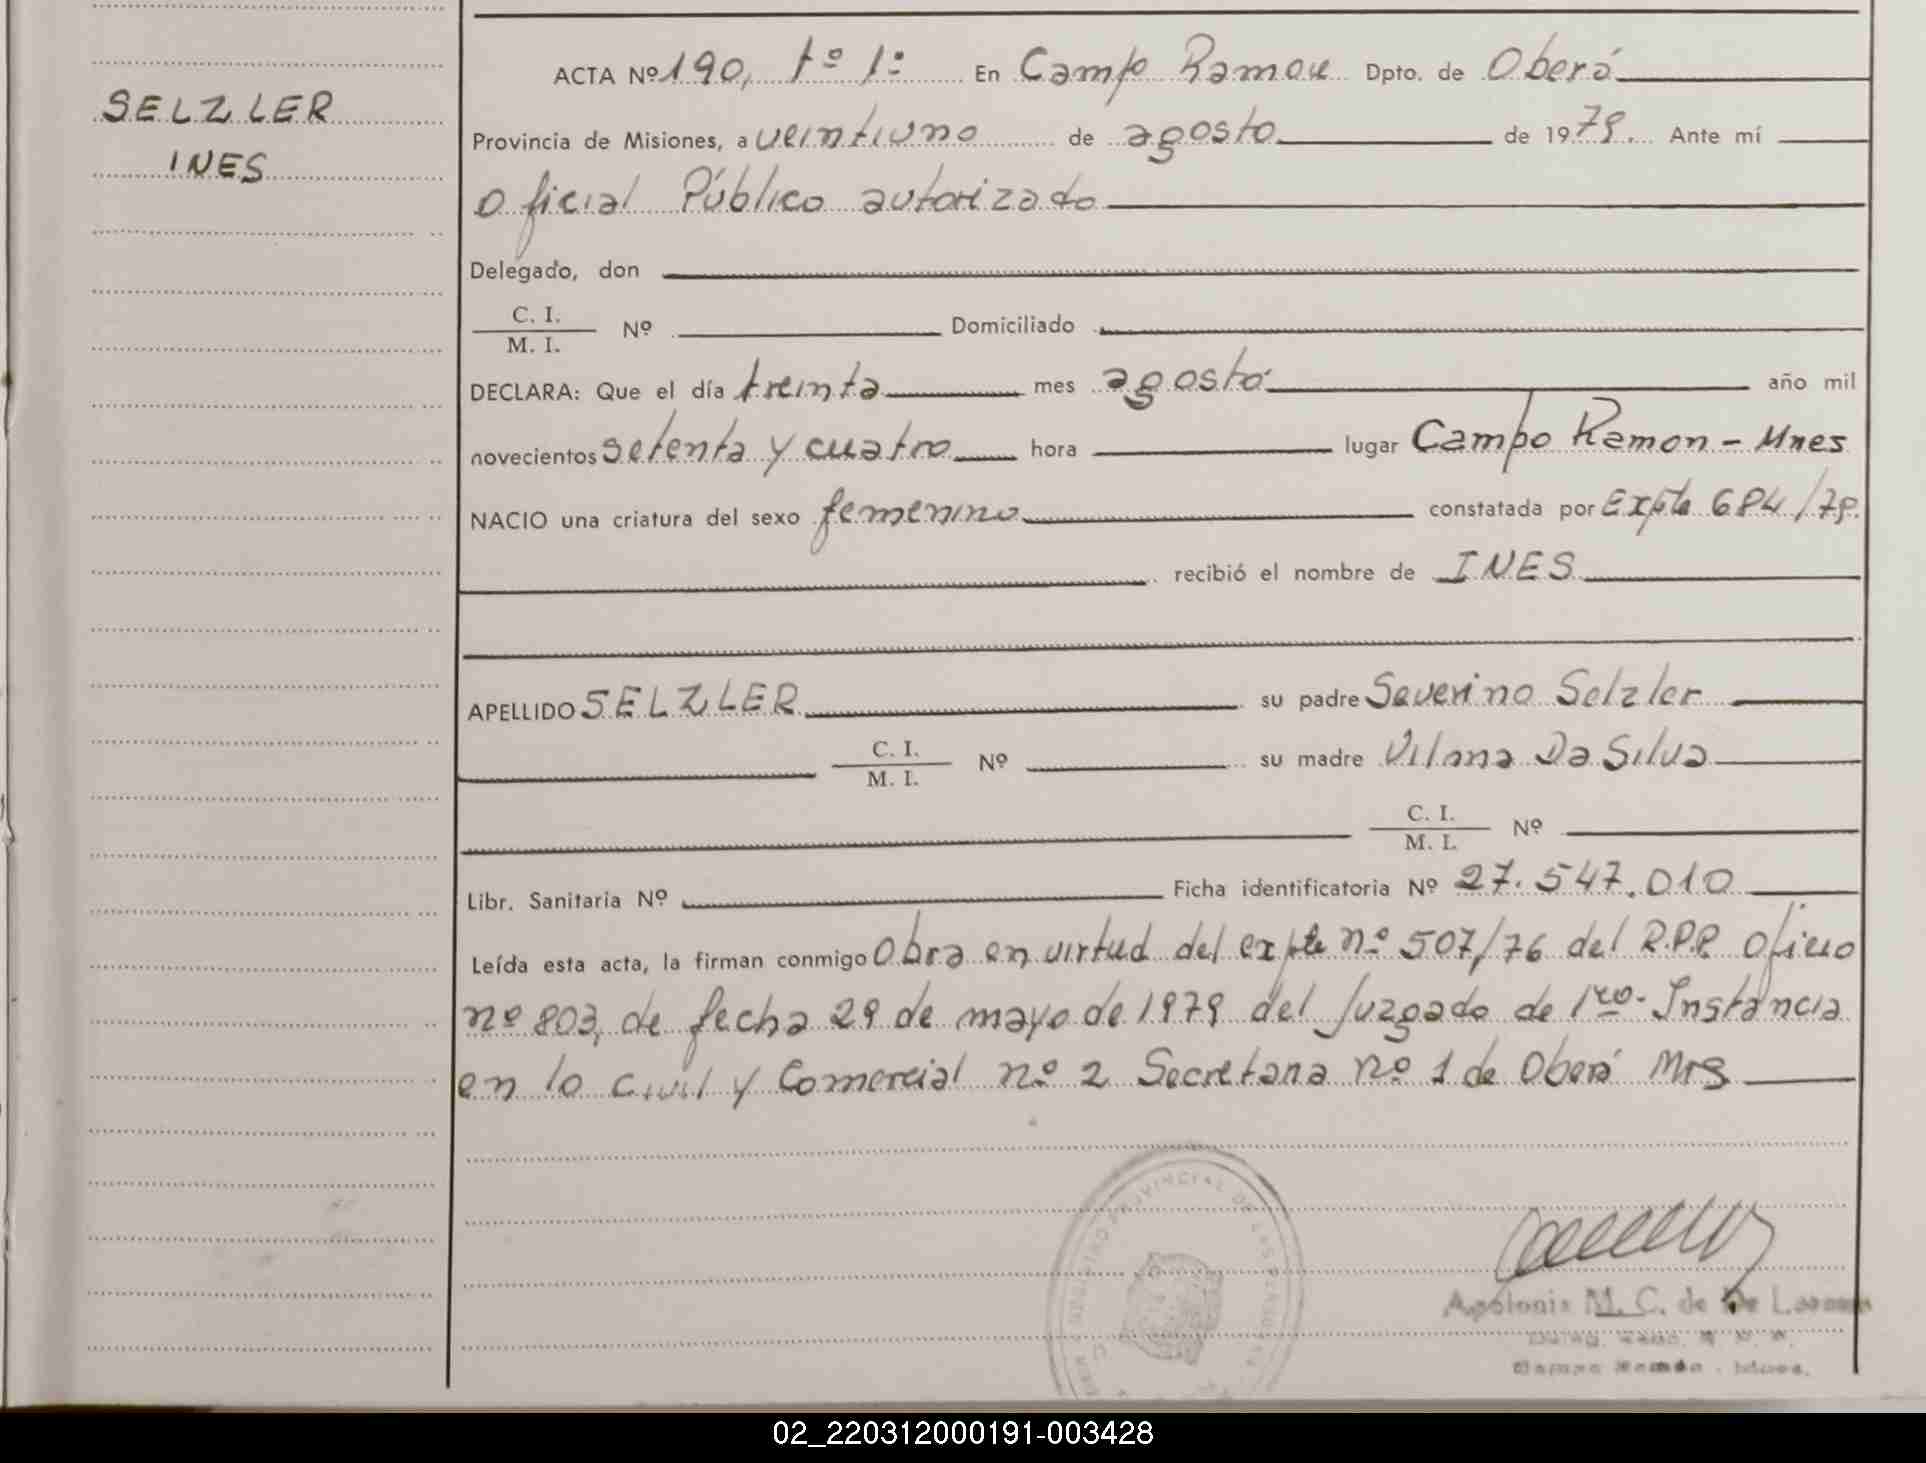 SELZLER
INES
ACTA Nº 190, tº 1º En Campo Ramon Dpto. de Oberá
Provincia de Misiones, a veintiuno de agosto de 1979. Ante mí
Oficial Público autorizado
Delegado, don
C. I.
M. I. Nº Domiciliado
DECLARA: Que el día treinta mes agosto año mil
novecientos setenta y cuatro hora lugar Campo Ramon - Mnes
NACIO una criatura del sexo femenino constatada por Expte 684/79.
recibió el nombre de INES
APELLIDO SELZLER su padre Severino Selzler
C. I.
M. I. Nº su madre Vilma Da Silva
C. I.
M. I. Nº
Libr. Sanitaria Nº Ficha identificatoria Nº 27.547.010
Leída esta acta, la firman conmigo Obra en virtud del expte nº 507/76 del R.P.P. Oficio
nº 803, de fecha 29 de mayo de 1979 del Juzgado de 1ro. Instancia
en lo Civil y Comercial nº 2 Secretaria nº 1 de Oberá Mns
REGISTRO PROVINCIAL DE LAS PERSONAS
Apolonia M. C. de De
Campo Ramón - Mnes.
02_220312000191-003428